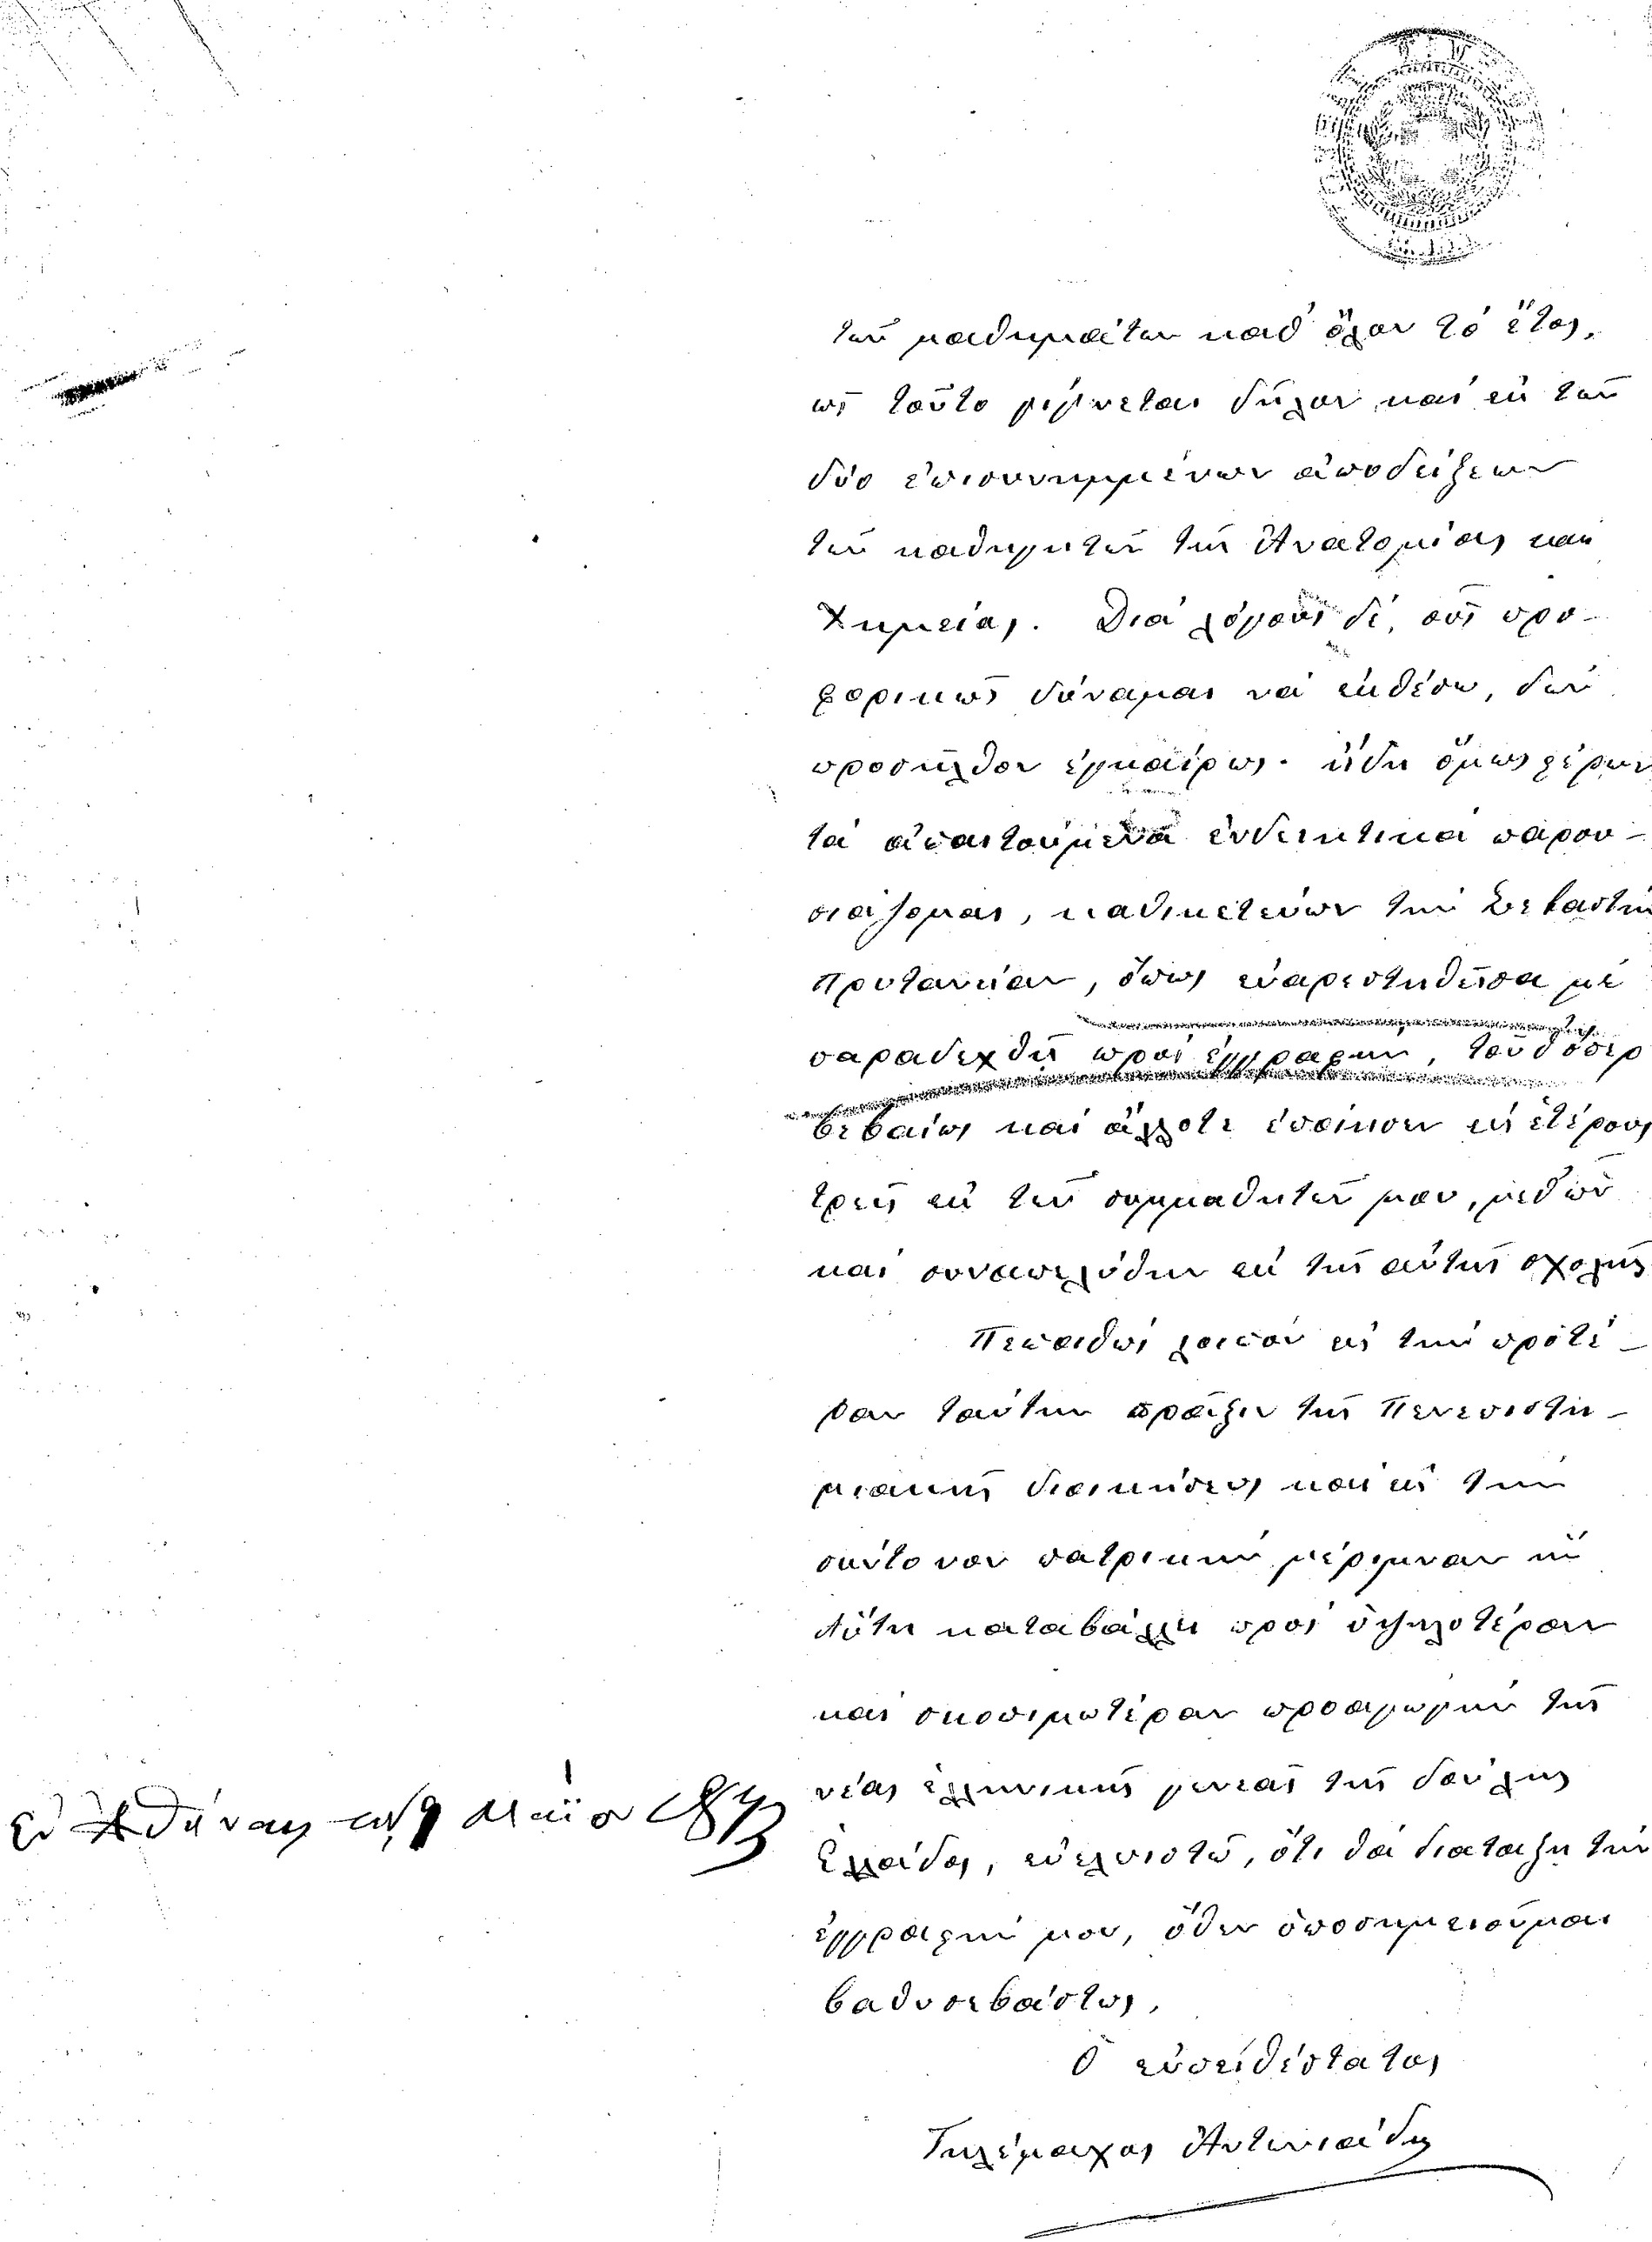 τῶν μαθημάτων καθ' ὅλον τὸ ἔτος,
ὡς τοῦτο γίγνεται δῆλον καὶ ἐκ τῶν
δύο ἐπισυνημμένων ἀποδείξεων
τῶν καθηγητῶν τῆς Ἀνατομίας καὶ
Χημείας. Διὰ λόγους δὲ, οὓς προ-
φορικῶς δύναμαι νὰ ἐκθέσω, δὲν
προσῆλθον ἐγκαίρως· ἤδη ὅμως φέρων
τὰ ἀπαιτούμενα ἐνδεικτικὰ παρου-
σιάζομαι, καθικετεύων τὴν Σεβαστὴν
Πρυτανείαν, ὅπως εὐαρεστηθεῖσα μὲ
παραδεχθῇ πρὸς ἐγγραφήν, τοῦθ' ὅπερ
βεβαίως καὶ ἄλλοτε ἐποίησεν εἰς ἑτέρους
τρεῖς ἐκ τῶν συμμαθητῶν μου, μεθ' ὧν
καὶ συναπελύθην ἐκ τῆς αὐτῆς σχολῆς
Πεποιθὼς λοιπὸν εἰς τὴν προτέ-
ραν ταύτην πρᾶξιν τῆς Πενεπιστη-
μιακῆς διοικήσεως καὶ εἰς τὴν
σύντονον πατρικὴν μέριμναν ἣν
Αὕτη καταβάλλει πρὸς ὑψηλοτέραν
καὶ σκοπιμωτέραν προαγωγὴν τῆς
νέας ἑλληνικῆς γενεᾶς τῆς δούλης
Ἑλλάδος, εὐελπιστῶ, ὅτι θὰ διατάξῃ τὴν
ἐγγραφήν μου, ὅθεν ὑποσημειοῦμαι
βαθυσεβάστως,
Ὁ εὐπειθέστατος
Τηλέμαχος Ἀντωνιάδης
Ἐν Ἀθήναις 9 Μαΐου 1873